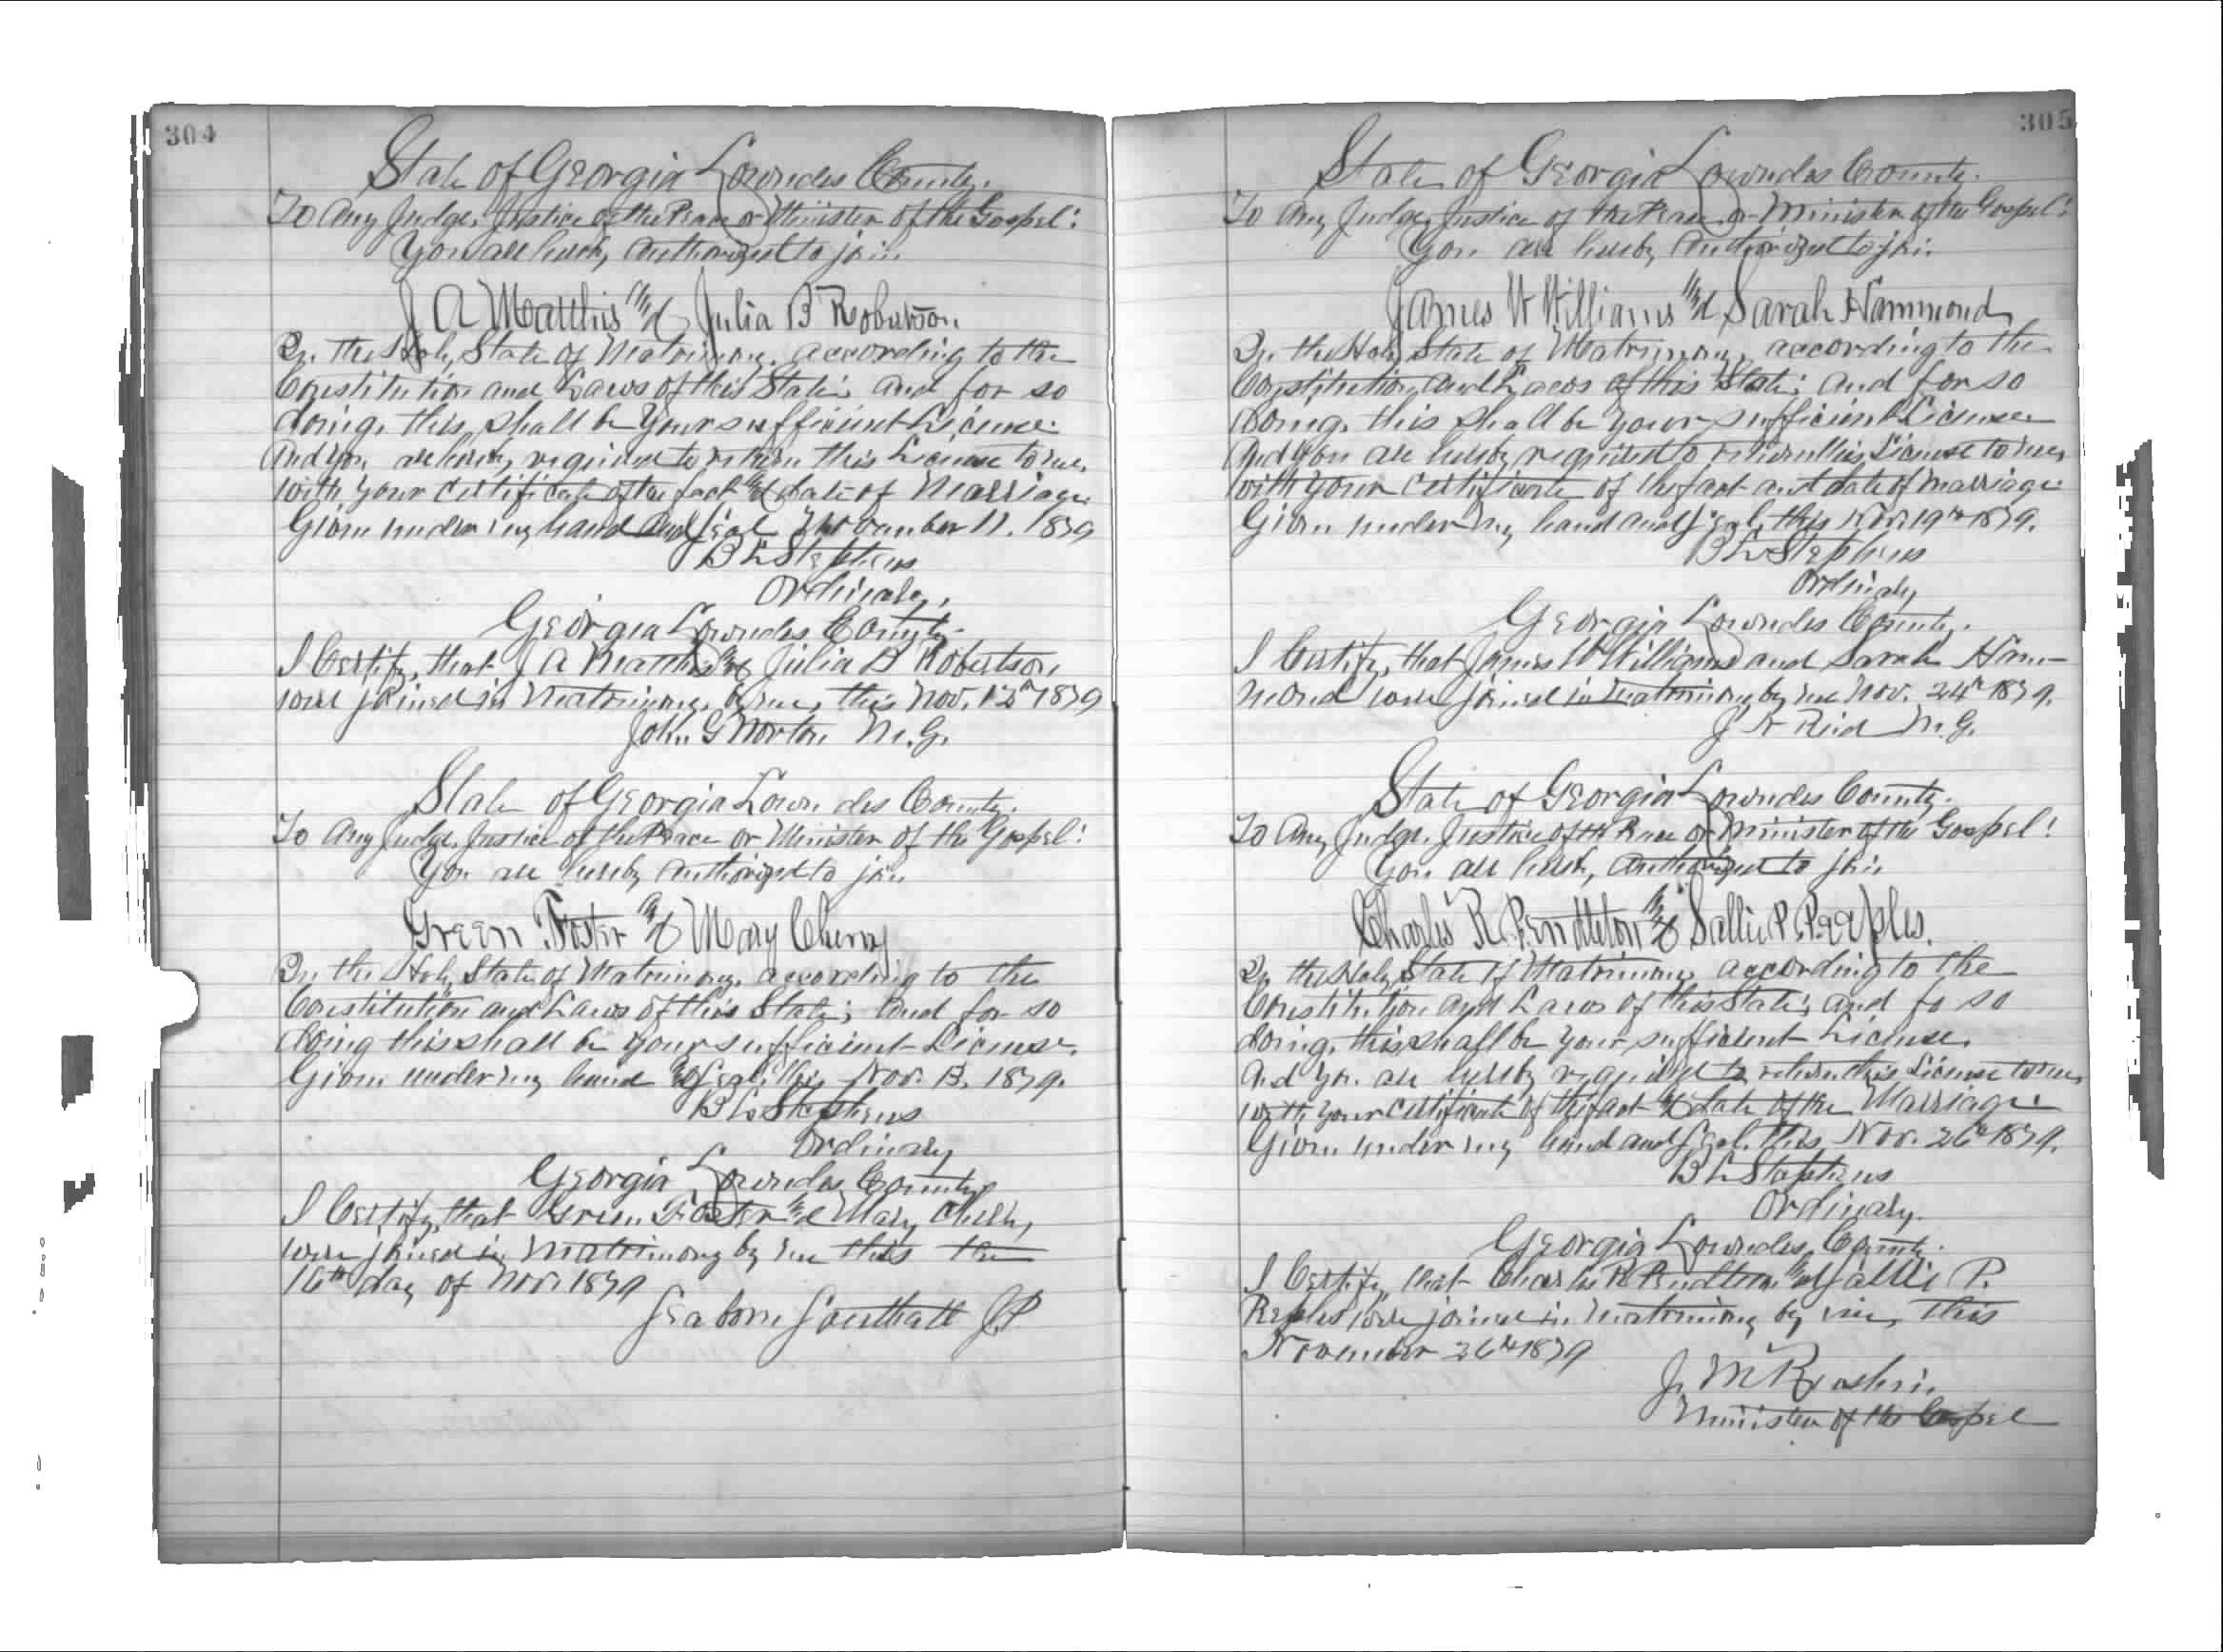 304
State of Georgia Lowndes County.
To Any Judge, Justice of the Peace or Minister of the Gospel:
You are hereby authorized to join
J A Matthis and Julia B Robertson
In the Holy State of Matrimony, according to the
Constitution and Laws of this State; and for so
doing, this shall be Your sufficient License.
And you are hereby required to return this License to me,
with your certificate of the fact and date of Marriage.
Given under my hand and seal November 11. 1879
B L Stephens
Ordinary,
Georgia Lowndes County.
I Certify, that J A Matthis and Julia B Robertson,
were joined in Matrimony, by me, this Nov. 13th 1879
John G Norton M.G.
State of Georgia Lowndes County.
To Any Judge, Justice of the Peace or Minister of the Gospel:
You are hereby authorized to join
Green Foster and Mary Cherry
In the Holy State of Matrimony, according to the
Constitution and Laws of this State; and for so
doing this shall be your sufficient License.
Given under my hand and seal, this Nov. 13, 1879.
B L Stephens
Ordinary
Georgia Lowndes County
I Certify, that Green Foster and Mary Cherry,
were joined in Matrimony by me this the
16th day of Nov. 1879
Seaborn Southall J.P
305
State of Georgia Lowndes County.
To Any Judge, Justice of the Peace or Minister of the Gospel:
You are hereby authorized to join
James W Williams and Sarah Hammond
In the Holy State of Matrimony, according to the
Constitution and Laws of this State; and for so
doing, this shall be your sufficient License.
And you are hereby required to return this License to me,
with your certificate of the fact and date of marriage
Given under my hand and seal, this Nov. 19th 1879.
B L Stephens
Ordinary
Georgia Lowndes County.
I Certify, that James W Williams and Sarah Ham-
mond were joined in matrimony by me Nov. 24th 1879.
J N Reid M.G.
State of Georgia Lowndes County.
To Any Judge, Justice of the Peace or Minister of the Gospel!
You are hereby authorized to join
Charles R. Pendleton and Sallie P. Peeples.
In the Holy State of Matrimony according to the
Constitution and Laws of this State; and fo so
doing, this shall be your sufficient License.
And you are hereby required to return this License to me,
with your certificate of the fact and date of the Marriage
Given under my hand and seal, this Nov. 26th 1879.
B L Stephens
Ordinary.
Georgia Lowndes County.
I Certify, that Charles R Pendleton and Sallie P.
Peeples were joined in matrimony by me, this
November 26th 1879
J. M Rushin.
Minister of the Gospel